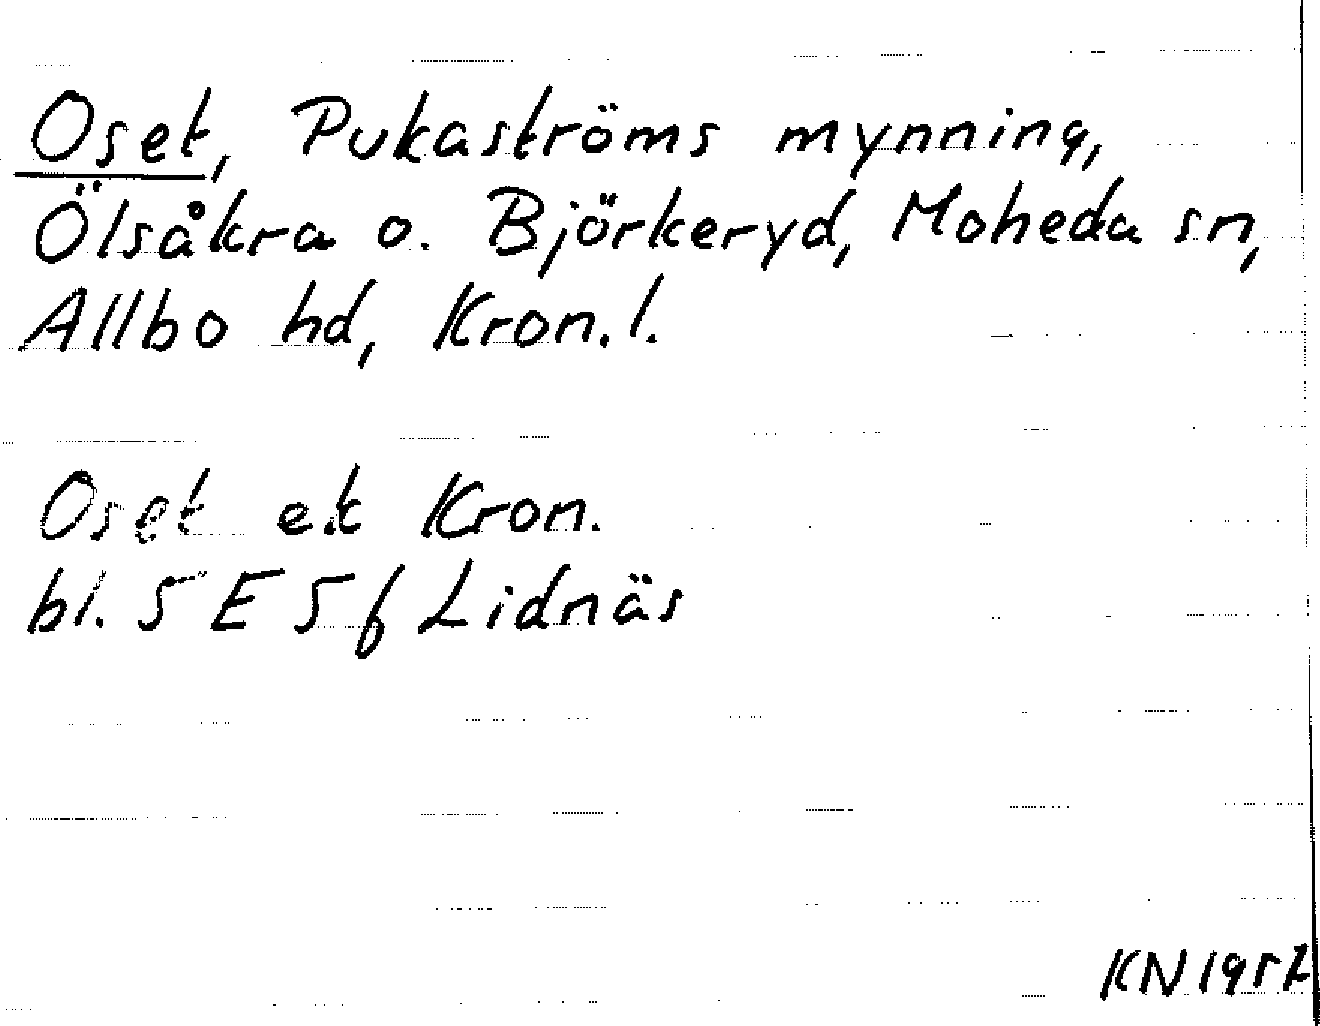 Oset, Pukaströms mynning,
Ölsåkra o. Björkeryd, Moheda sn,
Allbo hd, Kron. l.
Oset ek Kron.
bl. 5 E 5 f Lidnäs
KN 1957